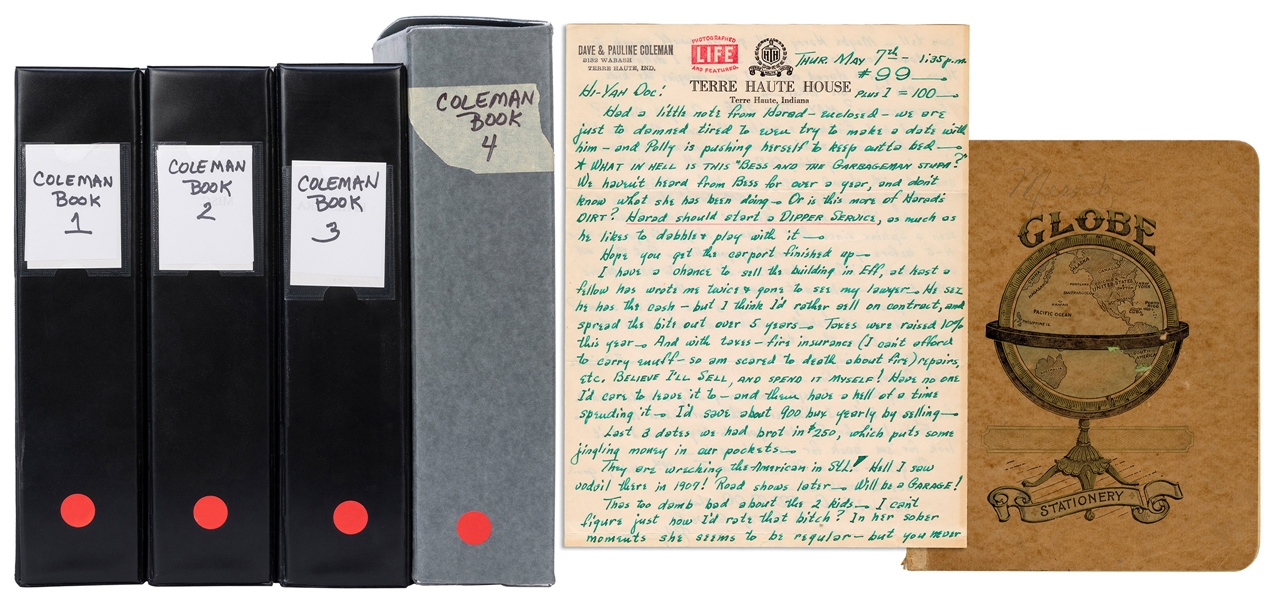 COLEMAN
BOOK
1
COLEMAN
BOOK
2
COLEMAN
BOOK
3
COLEMAN
BOOK
4
DAVE & PAULINE COLEMAN
WABASH
TERRE HAUTE, IND.
PHOTOGRAPHED
LIFE
AND FEATURED
THH
TERRE HAUTE HOUSE
Terre Haute, Indiana
THUR. MAY 7th - 1:35 p.m.
#99
PLUS 1 = 100
HI-YAH DOC!
Had a little note from Harad - enclosed - we are
just to damned tired to even try to make a date with
him - and Polly is pushing herself to keep outta bed
* WHAT IN HELL IS THIS "BESS AND THE GARBAGEMAN STUFF?"
We haven't heard from Bess for over a year, and don't
know what she has been doing - Or is this more of Harad's
DIRT? Harad should start a DIPPER SERVICE, as much as
he likes to dabble & play with it
Hope you get the carport finished up
I have a chance to sell the building in Eff, at least a
fellow has wrote me twice & gone to see my lawyer - He sez
he has the cash - but I think I'd rather sell on contract, and
spread the bite out over 5 years - Taxes were raised 10%
this year - And with taxes - fire insurance (I can't afford
to carry enuff - so am scared to death about fire) repairs,
etc. BELIEVE I'LL SELL, AND SPEND IT MYSELF! Have no one
I'd care to leave it to - and have a hell of a time
spending it - I'd save about 900 bux yearly by selling
Last 3 dates we had brot in $250, which puts some
jingling money in our pockets
They are wrecking the American in StL! Hell I saw
vodvil there in 1907! Road shows later - Will be a GARAGE!
Thas too damb bad about the 2 kids - I can't
figure just how I'd rate that bitch? In her sober
moments she seems to be regular - but you never
GLOBE
ALASKA
UNITED STATES
PACIFIC OCEAN
PHILIPPINE IS
SOUTH AMERICA
STATIONERY